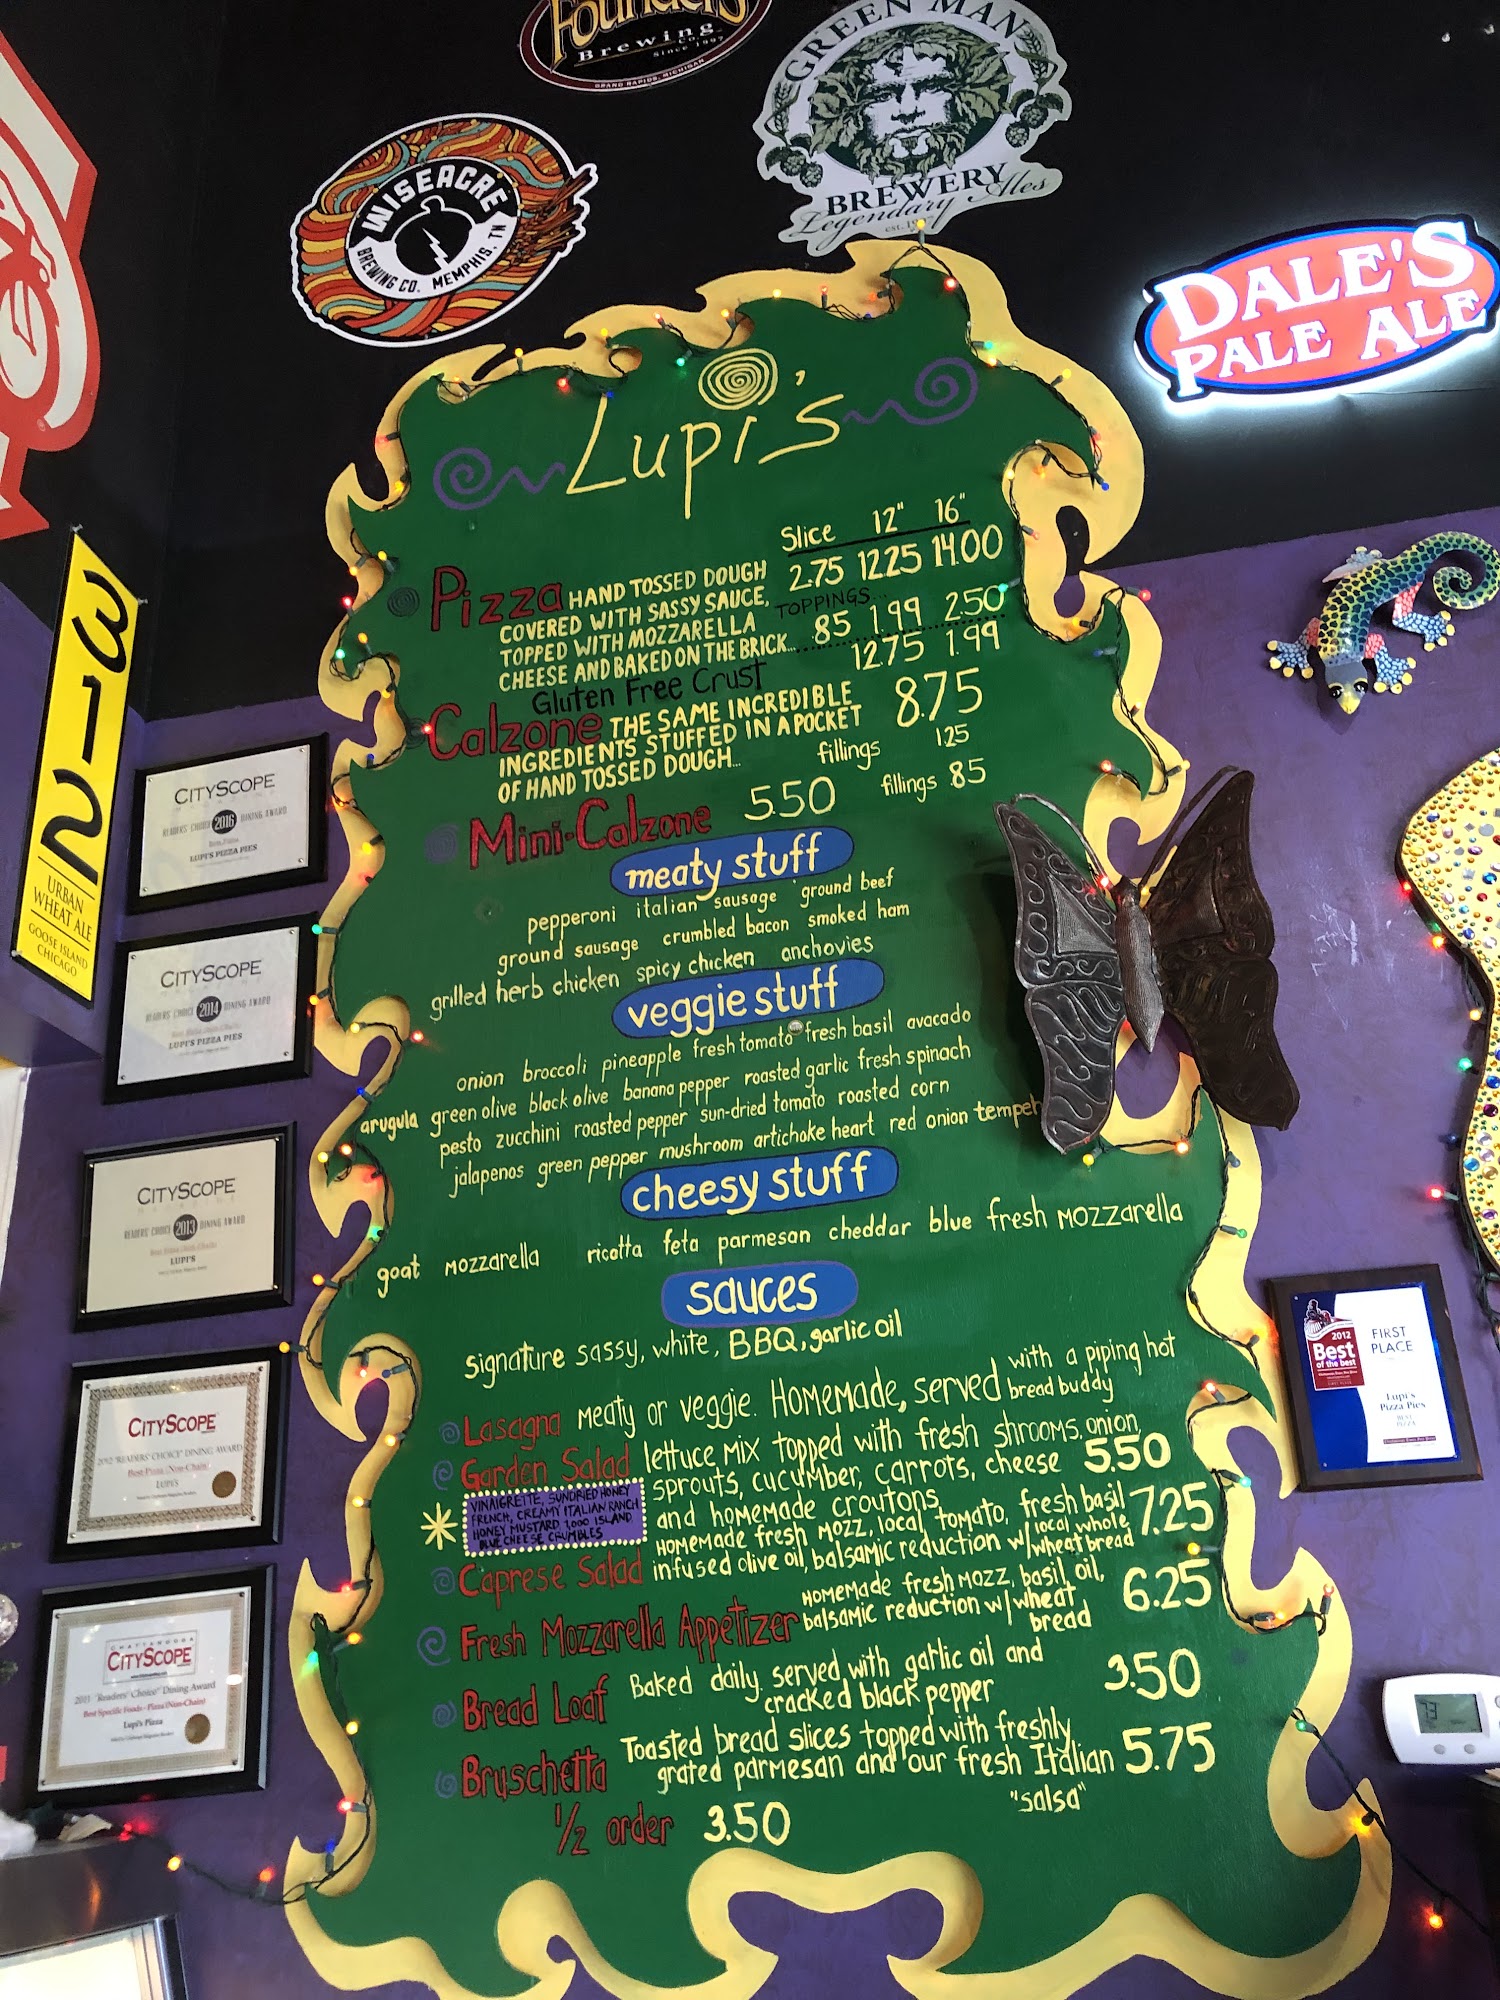 Founders
Brewing Co.
Since 1997
GRAND RAPIDS, MICHIGAN
GREEN MAN
BREWERY
Legendary Ales
WISEACRE
BREWING CO. MEMPHIS, TN
DALE'S
PALE ALE
Lupi's
Slice 12" 16"
Pizza HAND TOSSED DOUGH 2.75 12.25 14.00
COVERED WITH SASSY SAUCE, TOPPINGS...
TOPPED WITH MOZZARELLA .85 1.99 2.50
CHEESE AND BAKED ON THE BRICK...
Gluten Free Crust 12.75 1.99
Calzone THE SAME INCREDIBLE 8.75
INGREDIENTS STUFFED IN A POCKET
OF HAND TOSSED DOUGH... fillings 1.25
Mini-Calzone 5.50 fillings .85
meaty stuff
pepperoni italian sausage ground beef
ground sausage crumbled bacon smoked ham
grilled herb chicken spicy chicken anchovies
veggie stuff
onion broccoli pineapple fresh tomato fresh basil avacado
arugula green olive black olive banana pepper roasted garlic fresh spinach
pesto zucchini roasted pepper sun-dried tomato roasted corn
jalapenos green pepper mushroom artichoke heart red onion tempeh
cheesy stuff
goat mozzarella ricotta feta parmesan cheddar blue fresh mozzarella
sauces
signature sassy, white, BBQ, garlic oil
Lasagna meaty or veggie. Homemade, served with a piping hot
bread buddy
Garden Salad lettuce mix topped with fresh shrooms, onion,
sprouts, cucumber, carrots, cheese 5.50
and homemade croutons
VINAIGRETTE, SUNDRIED HONEY
FRENCH, CREAMY ITALIAN RANCH
HONEY MUSTARD 1,000 ISLAND
BLUE CHEESE CRUMBLES
Caprese Salad homemade fresh mozz, local tomato, fresh basil 7.25
infused olive oil, balsamic reduction w/ local whole
wheat bread
Fresh Mozzarella Appetizer homemade fresh mozz, basil, oil, 6.25
balsamic reduction w/ wheat
bread
Bread Loaf Baked daily. served with garlic oil and 3.50
cracked black pepper
Bruschetta Toasted bread slices topped with freshly
grated parmesan and our fresh Italian 5.75
"salsa"
1/2 order 3.50
312
URBAN
WHEAT ALE
GOOSE ISLAND
CHICAGO
CITYSCOPE
READERS' CHOICE 2016 DINING AWARD
LUPI'S PIZZA PIES
CITYSCOPE
READERS' CHOICE 2014 DINING AWARD
LUPI'S PIZZA PIES
CITYSCOPE
READERS' CHOICE 2013 DINING AWARD
LUPI'S
CITYSCOPE
2012 "READERS' CHOICE" DINING AWARD
Best Pizza (Non-Chain)
LUPI'S
CHATTANOOGA
CITYSCOPE
2011 "Readers' Choice" Dining Award
Best Specific Foods - Pizza (Non-Chain)
Lupi's Pizza
2012
Best
of the best
FIRST
PLACE
Lupi's
Pizza Pies
BEST
PIZZA
73